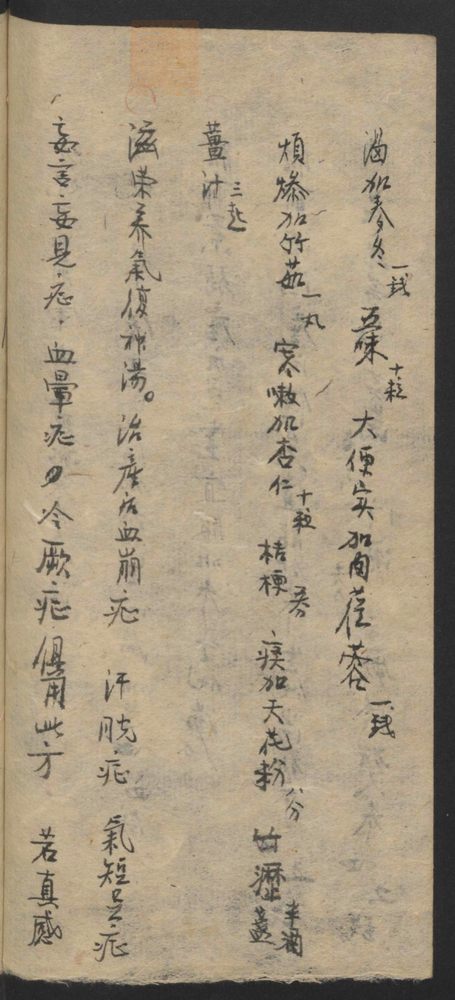 渴加麥冬一錢 五味十粒 大便实加肉苁蓉一錢
煩燥加竹茹一丸 寒嗽加杏仁十粒 桔梗五分 痰加天花粉八分 竹瀝半酒盞
薑汁三匙
滋荣养氣復神湯。治産后血崩症 汗脱症 氣短足症
妄言妄見症 血暈症 冷厥症 俱用此方 若真感